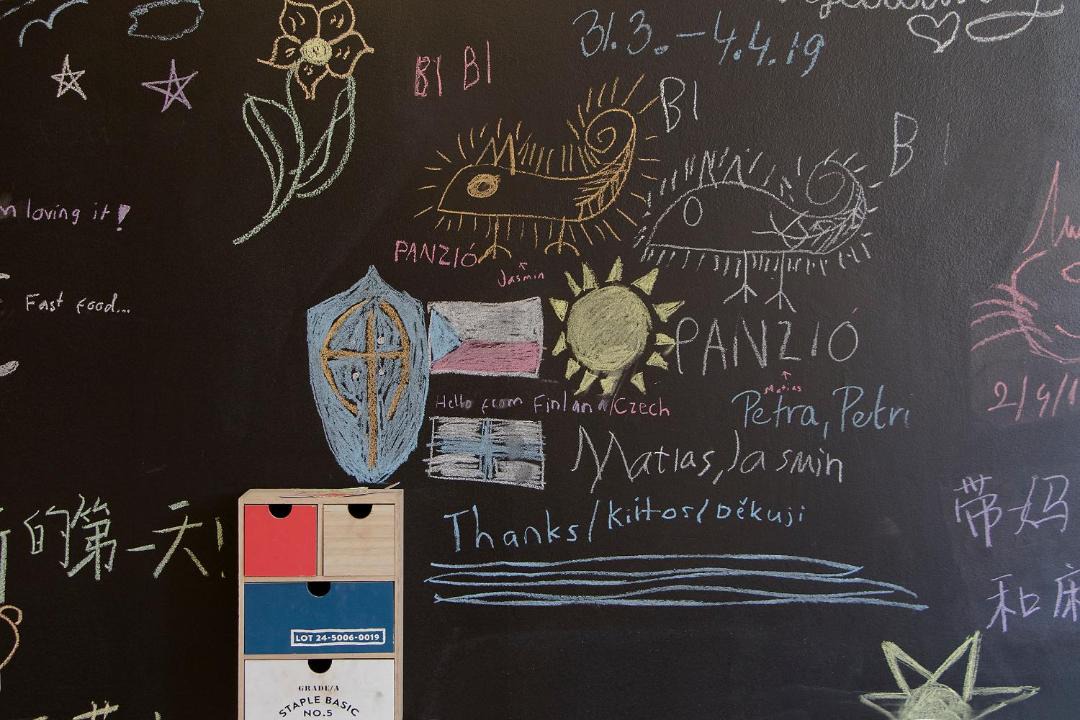 31.3.-4.4.19
BI BI
BI
BI
m loving it!
PANZIÓ
Jasmin
Fast food...
PANZIÓ
Matias
Hello from Finland/Czech
Petra, Petri
2/4/1
Matias, Jasmin
的第一天!
Thanks/kiitos/Děkuji
带妈
和麻
LOT 24-5006-0019
GRADE/A
STAPLE BASIC
NO.5